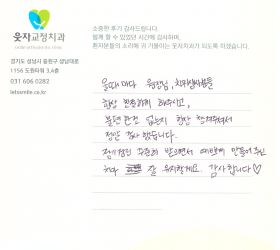 소중한 후기 감사드립니다.
함께 할 수 있었던 시간에 감사하며,
환자분들의 소리에 귀 기울이는 웃자치과가 되도록 하겠습니다.
웃자교정치과
경기도 성남시 중원구 성남대로
1156 도원타워 3,4층
031 606 0282
letosmile.co.kr
올때마다 원장님, 치과선생님들
항상 친절하게 해주시고,
불편한건 없는지 항상 체크해주셔서
정말 감사했습니다.
정기검진 꾸준히 받으면서 예쁘게 만들어주신
치아 잘 유지할게요. 감사합니다♡